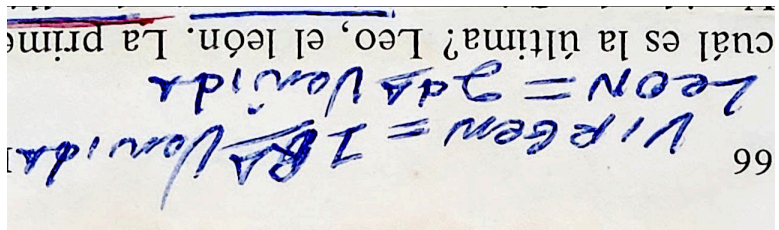 66
VIRGEN = 1RA Venida
LEON = 2da Venida
cuál es la última? Leo, el león. La prime